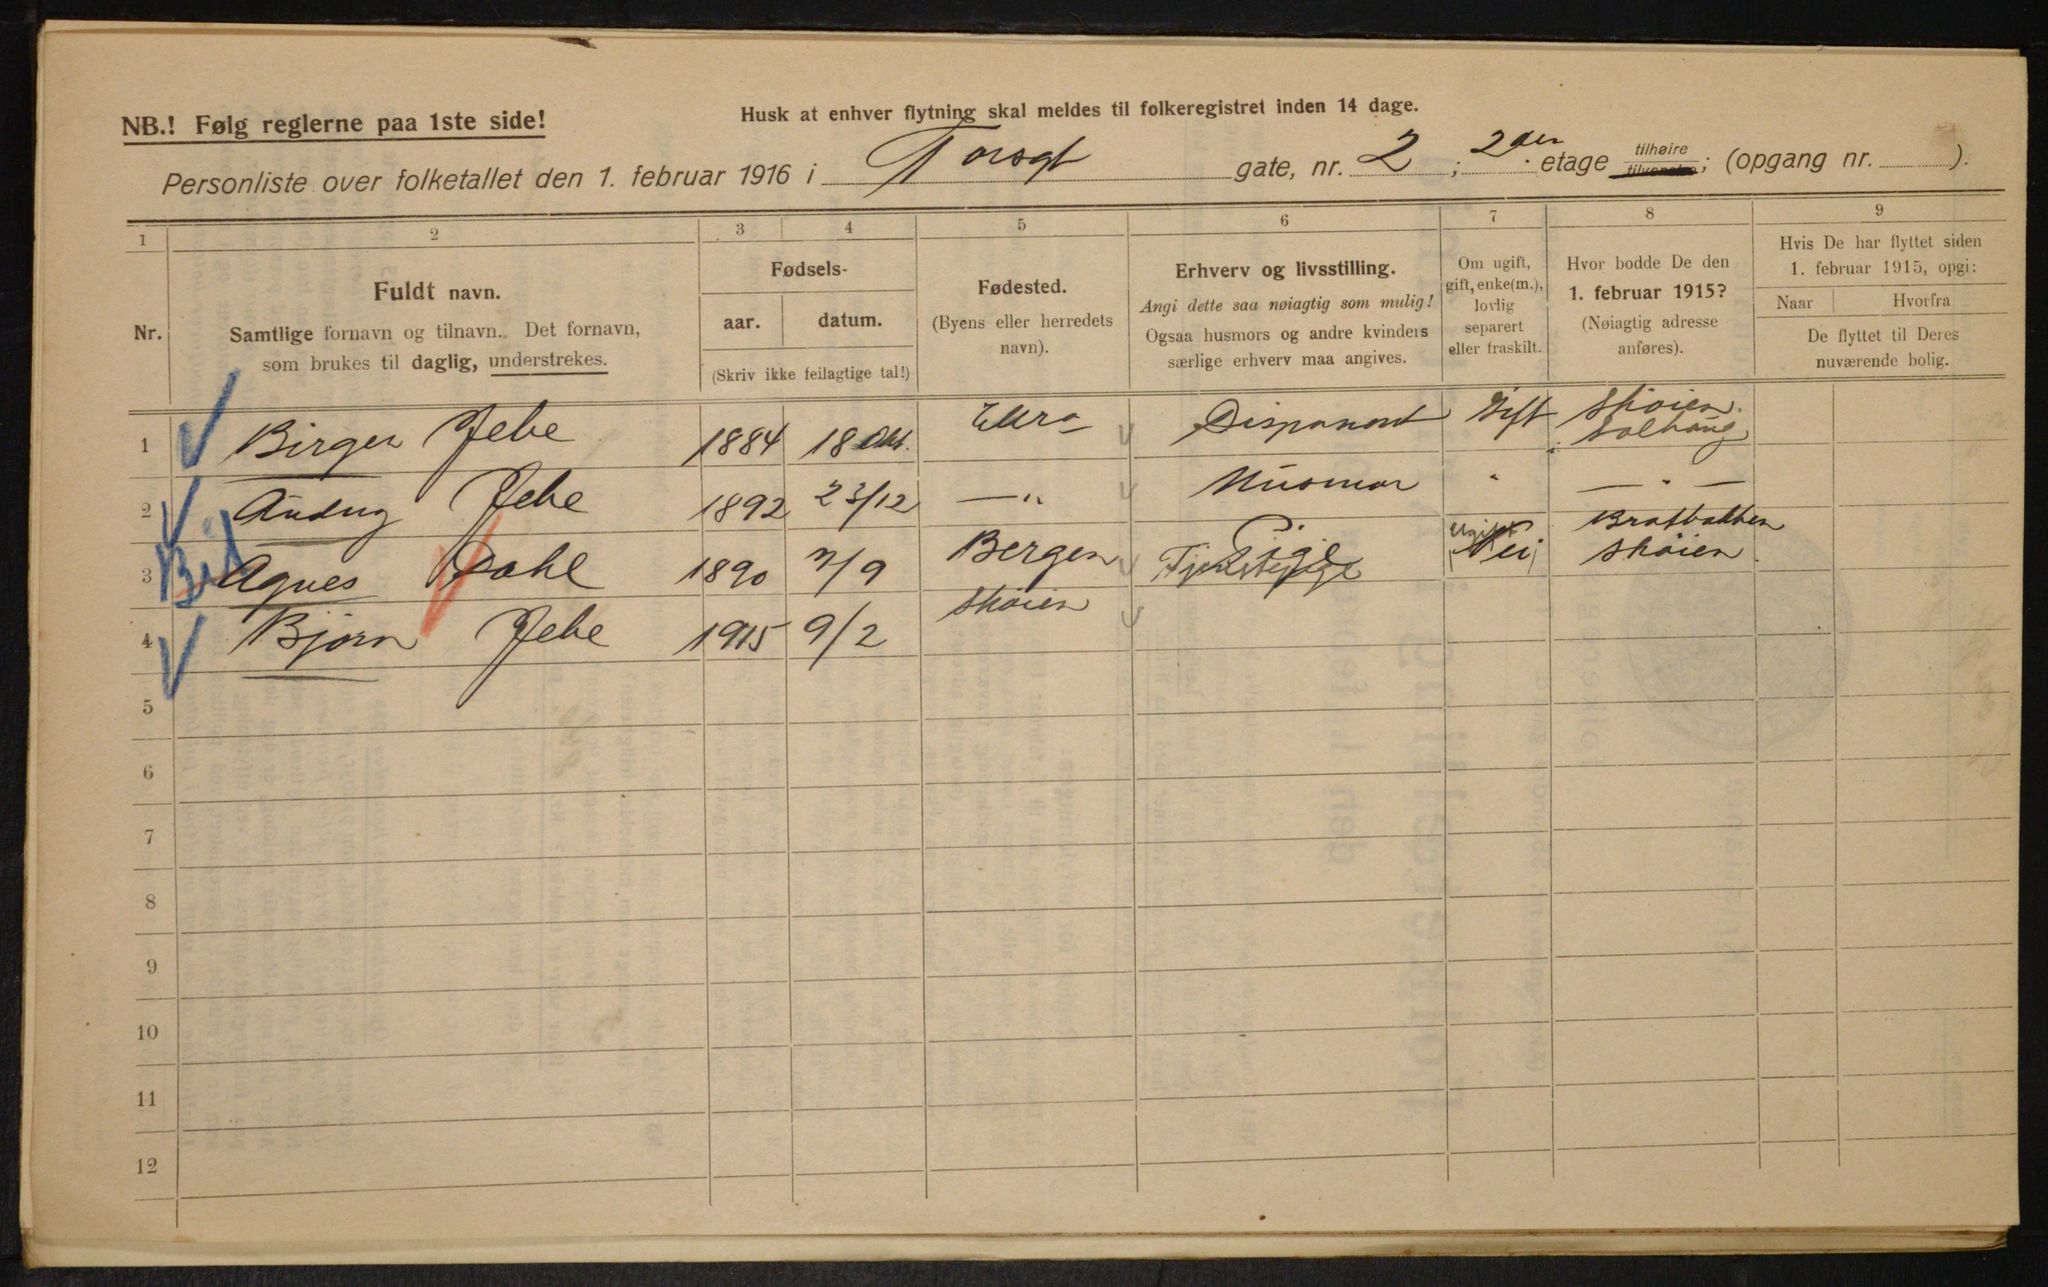 NB.! Følg reglerne paa 1ste side!
Husk at enhver flytning skal meldes til folkeregistret inden 14 dage.
Personliste over folketallet den 1. februar 1916 i Torsgt gate, nr. 2 ; 2den etage tilhøire tilvenstre; (opgang nr. ).
1 2 3 4 5 6 7 8 9
Nr.
Fuldt navn.
Samtlige fornavn og tilnavn. Det fornavn,
som brukes til daglig, understrekes.
Fødsels-
aar. datum.
(Skriv ikke feilagtige tal!)
Fødested.
(Byens eller herredets
navn).
Erhverv og livsstilling.
Angi dette saa nøiagtig som mulig!
Ogsaa husmors og andre kvinders
særlige erhverv maa angives.
Om ugift,
gift, enke(m.),
lovlig
separert
eller fraskilt.
Hvor bodde De den
1. februar 1915?
(Nøiagtig adresse
anføres).
Hvis De har flyttet siden
1. februar 1915, opgi:
Naar Hvorfra
De flyttet til Deres
nuværende bolig.
1 Birger Jebe 1884 18 Okt. Disponent Gift Skøien
Solhaug
2 Jebe 1892 23/12 —"— Husmor " — " —
3 Agnes Dahl 1890 7/9 Bergen Pige Tjenestepige Ugift Nei
Skøien
4 Bjørn Jebe 1915 9/2 Skøien
5
6
7
8
9
10
11
12